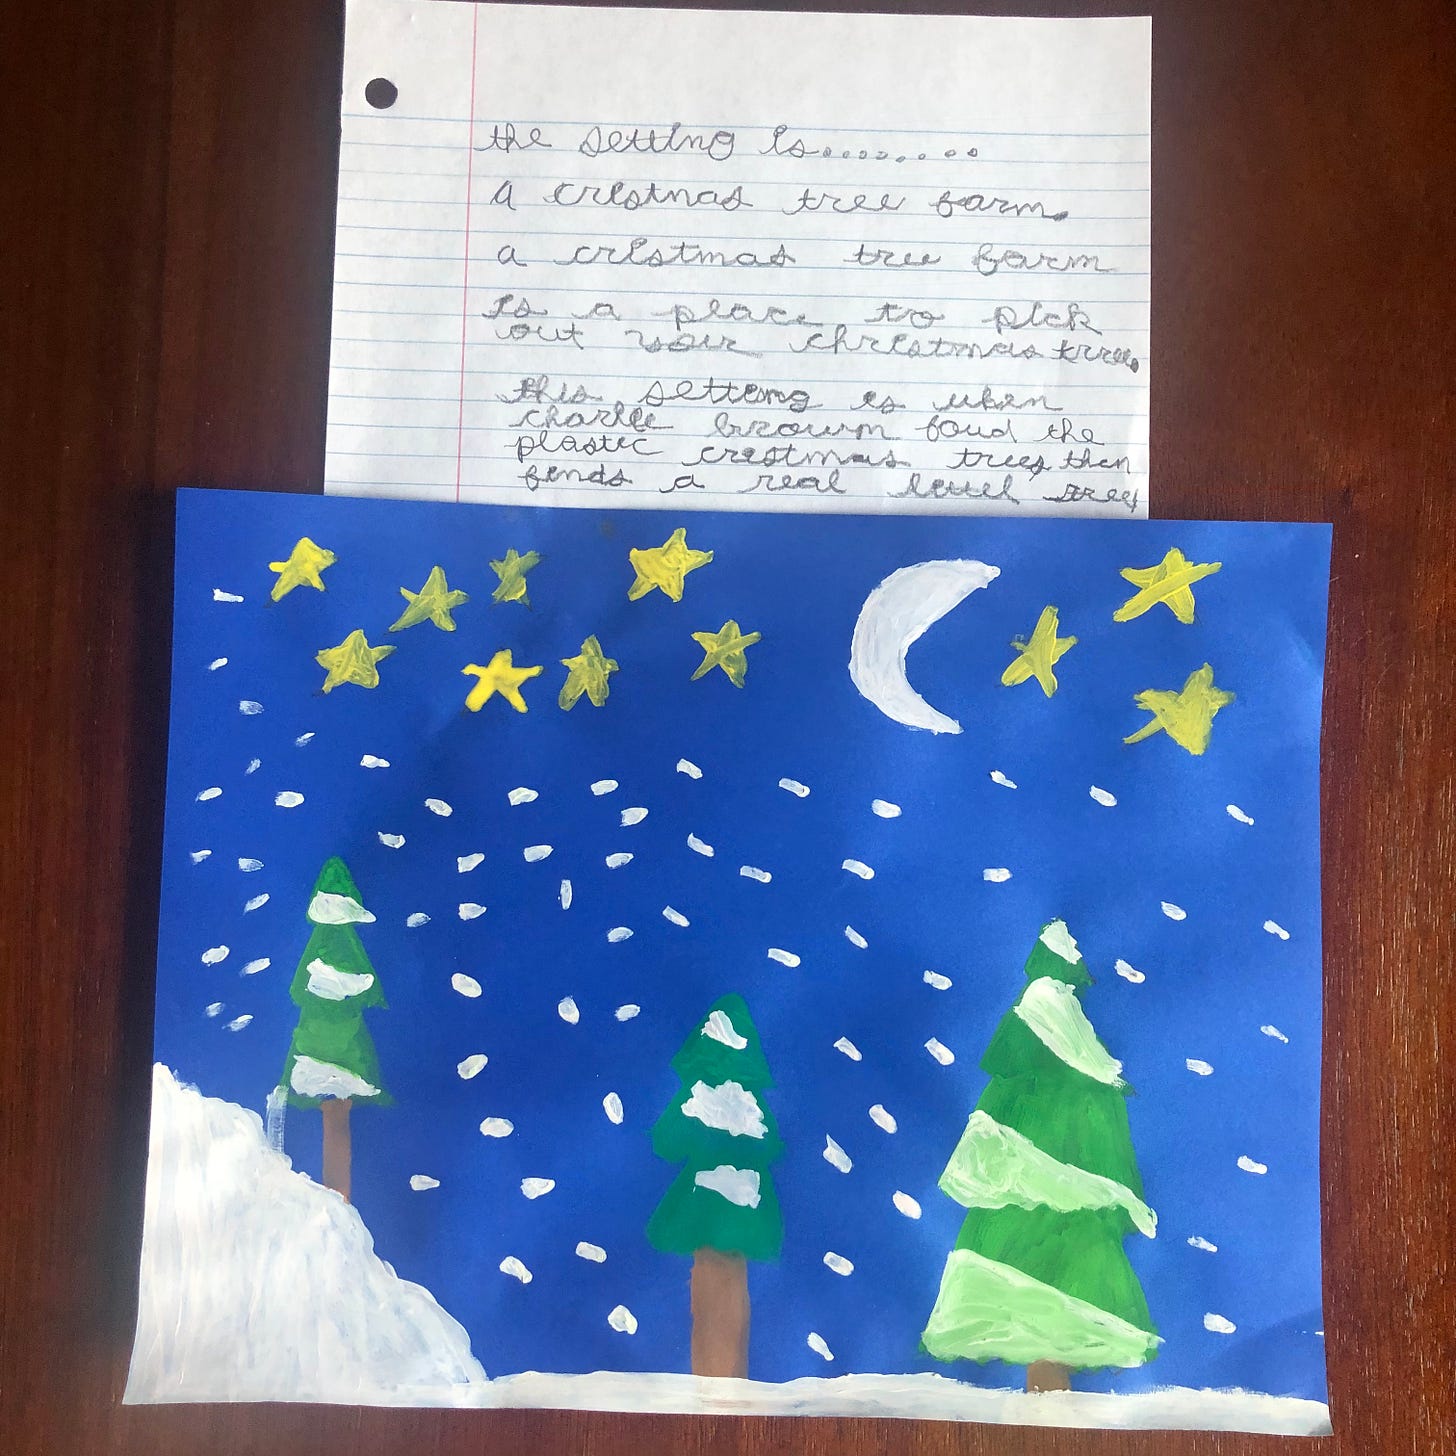 the setting is.........
a cristmas tree farm.
a cristmas tree farm
is a place to pick
out your christmas tree.
this setting is when
charlie brown foud the
plastic crestmas trees then
finds a real tree